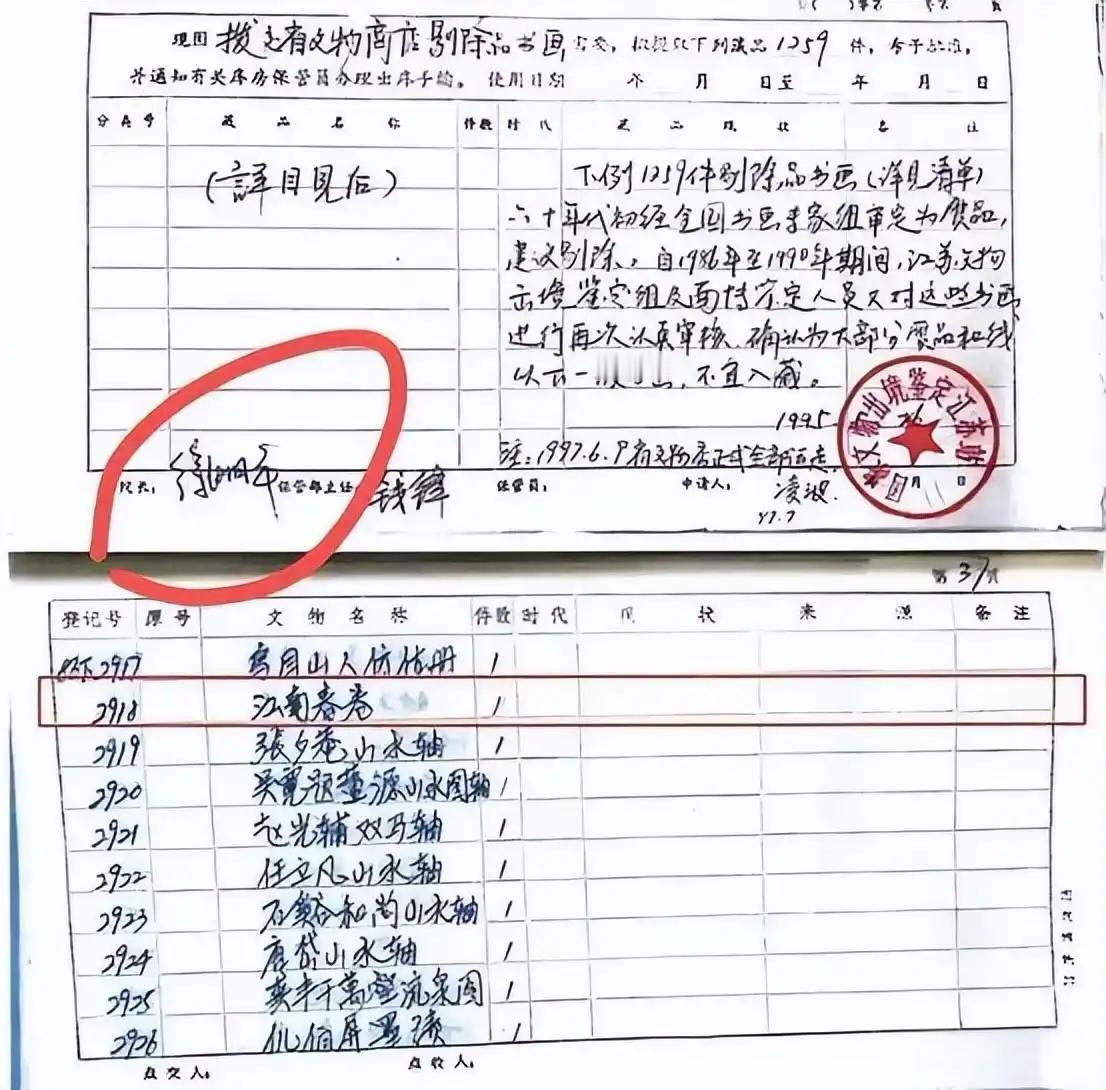 现因 拨交省文物商店剔除品书画 需要，拟提取下列藏品 1259 件，
并通知有关库房保管员办理出库手续。 使用日期 年 月 日至 年 月 日
分类号 藏品名称 件数 时代 藏品现状 备注
(詳目見后)
下列1259件剔除品书画(详见清单)
六十年代初经全国书画专家组审定为贋品,
建议剔除。自1986年至1990年期间,江苏文物
出境鉴定组及面持鉴定人员又对这些书画
进行再次认真审核,确认为大部分贋品和线
以下一般
,不宜入藏。
1995
注:1997.6.9省文物店正式全部运走.
院长: 徐湖平 保管部主任: 钱锋 保管员: 申请人: 凌波.
97.7
文物出境鉴定江苏站
月 日
第 37 页
登记号 原号 文物名称 件数 时代 现状 来源 备注
2917 仿 册 1
2918 江南春卷 1
2919 張夕菴山水轴 1
2920 吴寬题董源山水图轴 1
2921 赵光辅双马轴 1
2922 任立凡山水轴 1
2923 石 和尚山水轴 1
2924 唐岱山水轴 1
2925 奚 千萬壑流泉图 1
2926 伊伯屏墨 1
点交人: 点收人: